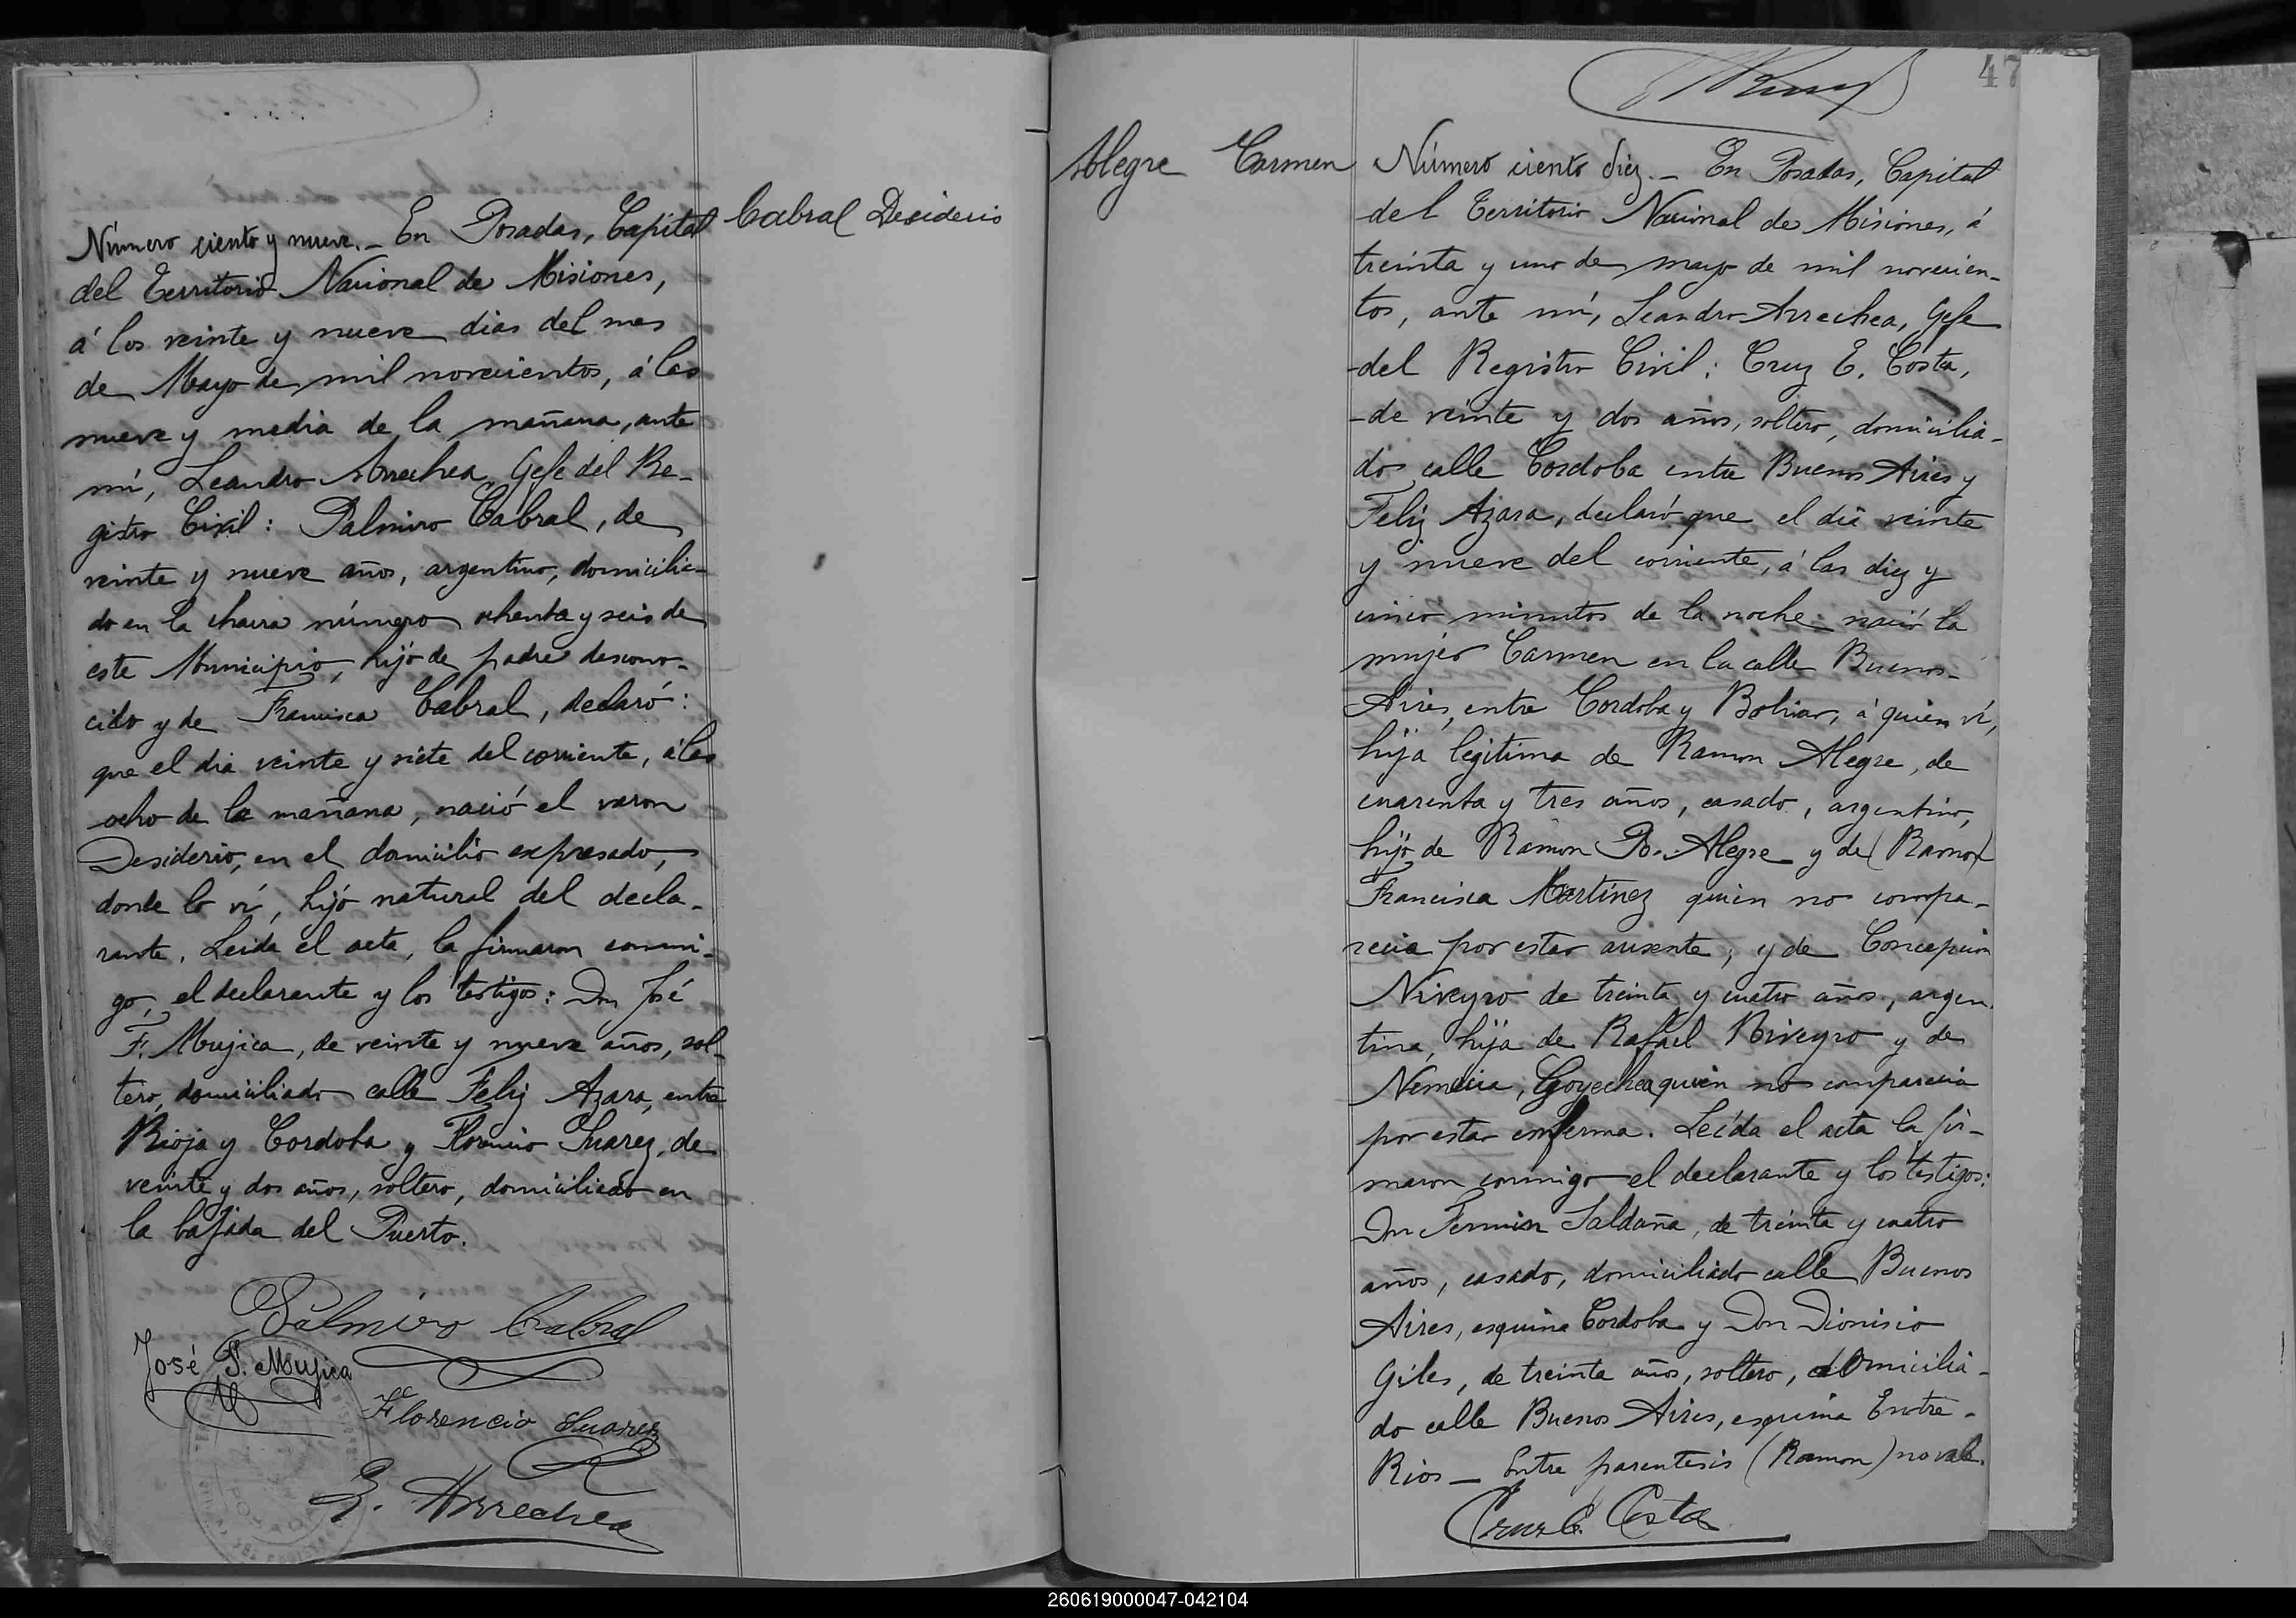 Cabral Desiderio
Número ciento y nueve. _ En Posadas, Capital
del Territorio Nacional de Misiones,
á los veinte y nueve dias del mes
de Mayo de mil novecientos, á las
nueve y media de la mañana, ante
mí, Leandro Arrechea, Gefe del Re-
gistro Civil: Palmiro Cabral, de
veinte y nueve años, argentino, domicilia-
do en la chacra número ochenta y seis de
este Municipio, hijo de padre descono-
cido y de Francisca Cabral, declaró:
que el dia veinte y siete del corriente, á las
ocho de la mañana, nació el varon
Desiderio, en el domicilio expresado,
donde lo ví, hijo natural del decla-
rante. Leida el acta, la firmaron conmi-
go, el declarante y los testigos: Don José
F. Mujica, de veinte y nueve años, sol-
tero, domiciliado calle Feliz Azara, entre
Rioja y Cordoba y Suarez, de
veinte y dos años, soltero, domiciliado en
la bajada del Puerto.
Palmiro Cabral
José F. Mujica
Florencio Suarez
L. Arrechea
47
Alegre Carmen
Número ciento diez. _ En Posadas, Capital
del Territorio Nacional de Misiones, á
treinta y uno de mayo de mil novecien-
tos, ante mí, Leandro Arrechea, Gefe
del Registro Civil: Cruz E. Costa,
de veinte y dos años, soltero, domicilia-
do calle Cordoba entre Buenos Aires y
Feliz Azara, declaró que el dia veinte
y nueve del corriente, á las diez y
cinco minutos de la noche nació la
mujer Carmen en la calle Buenos-
Aires, entre Cordoba y Bolivar, á quien ví,
hija legitima de Ramon Alegre, de
cuarenta y tres años, casado, argentino,
hijo de Ramon B. Alegre y de (Ramon)
Francisca Martínez quien no compa-
recia por estar ausente, y de Concepcion
Niveyro de treinta y cuatro años, argen-
tina, hija de Rafael Niveyro y de
Nemecia, Goyechea quien no comparecia
por estar enferma. Leída el acta la fir-
maron conmigo el declarante y los testigos:
Don Fermin Saldaña, de treinta y cuatro
años, casado, domiciliado calle Buenos
Aires, esquina Cordoba y Don Dionisio
Giles, de treinta años, soltero, domicilia-
do calle Buenos Aires, esquina Entre-
Rios _ Entre parentesis (Ramon) no vale.
Cruz E. Costa
260619000047-042104